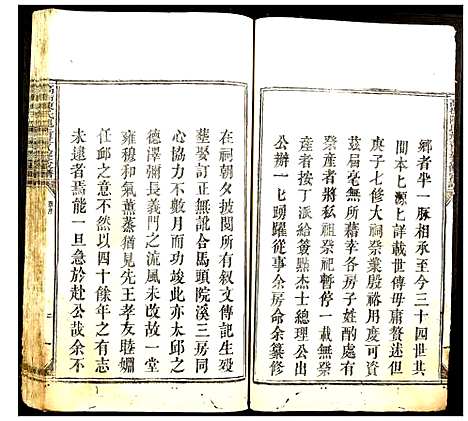 鄉者半一脈相承至今三十四世共
間本七瀨乜詳載世傳毋庸贅述但
庚子七修大祠祭業殷裕用度可行
茲屆毫無所藉幸各房子姓酌處有
祭產者將私祖祭祀暫停一載無祭
產者按丁派給簽點杰士總理公出
公辦一乜踴躍從事余房命余纂修
在祠朝夕披閱所有敘文傳記生歿
塟娶訂正無訛合馬頭院溪三房同
心協力不數月而功竣此亦太邱之
德澤彌長義門之流風未改故一堂
雍穆和氣薰蒸猶見先王孝友睦婣
任邱之遺意然以四十餘年之有志
未逮者焉能一旦急於赴公哉余不